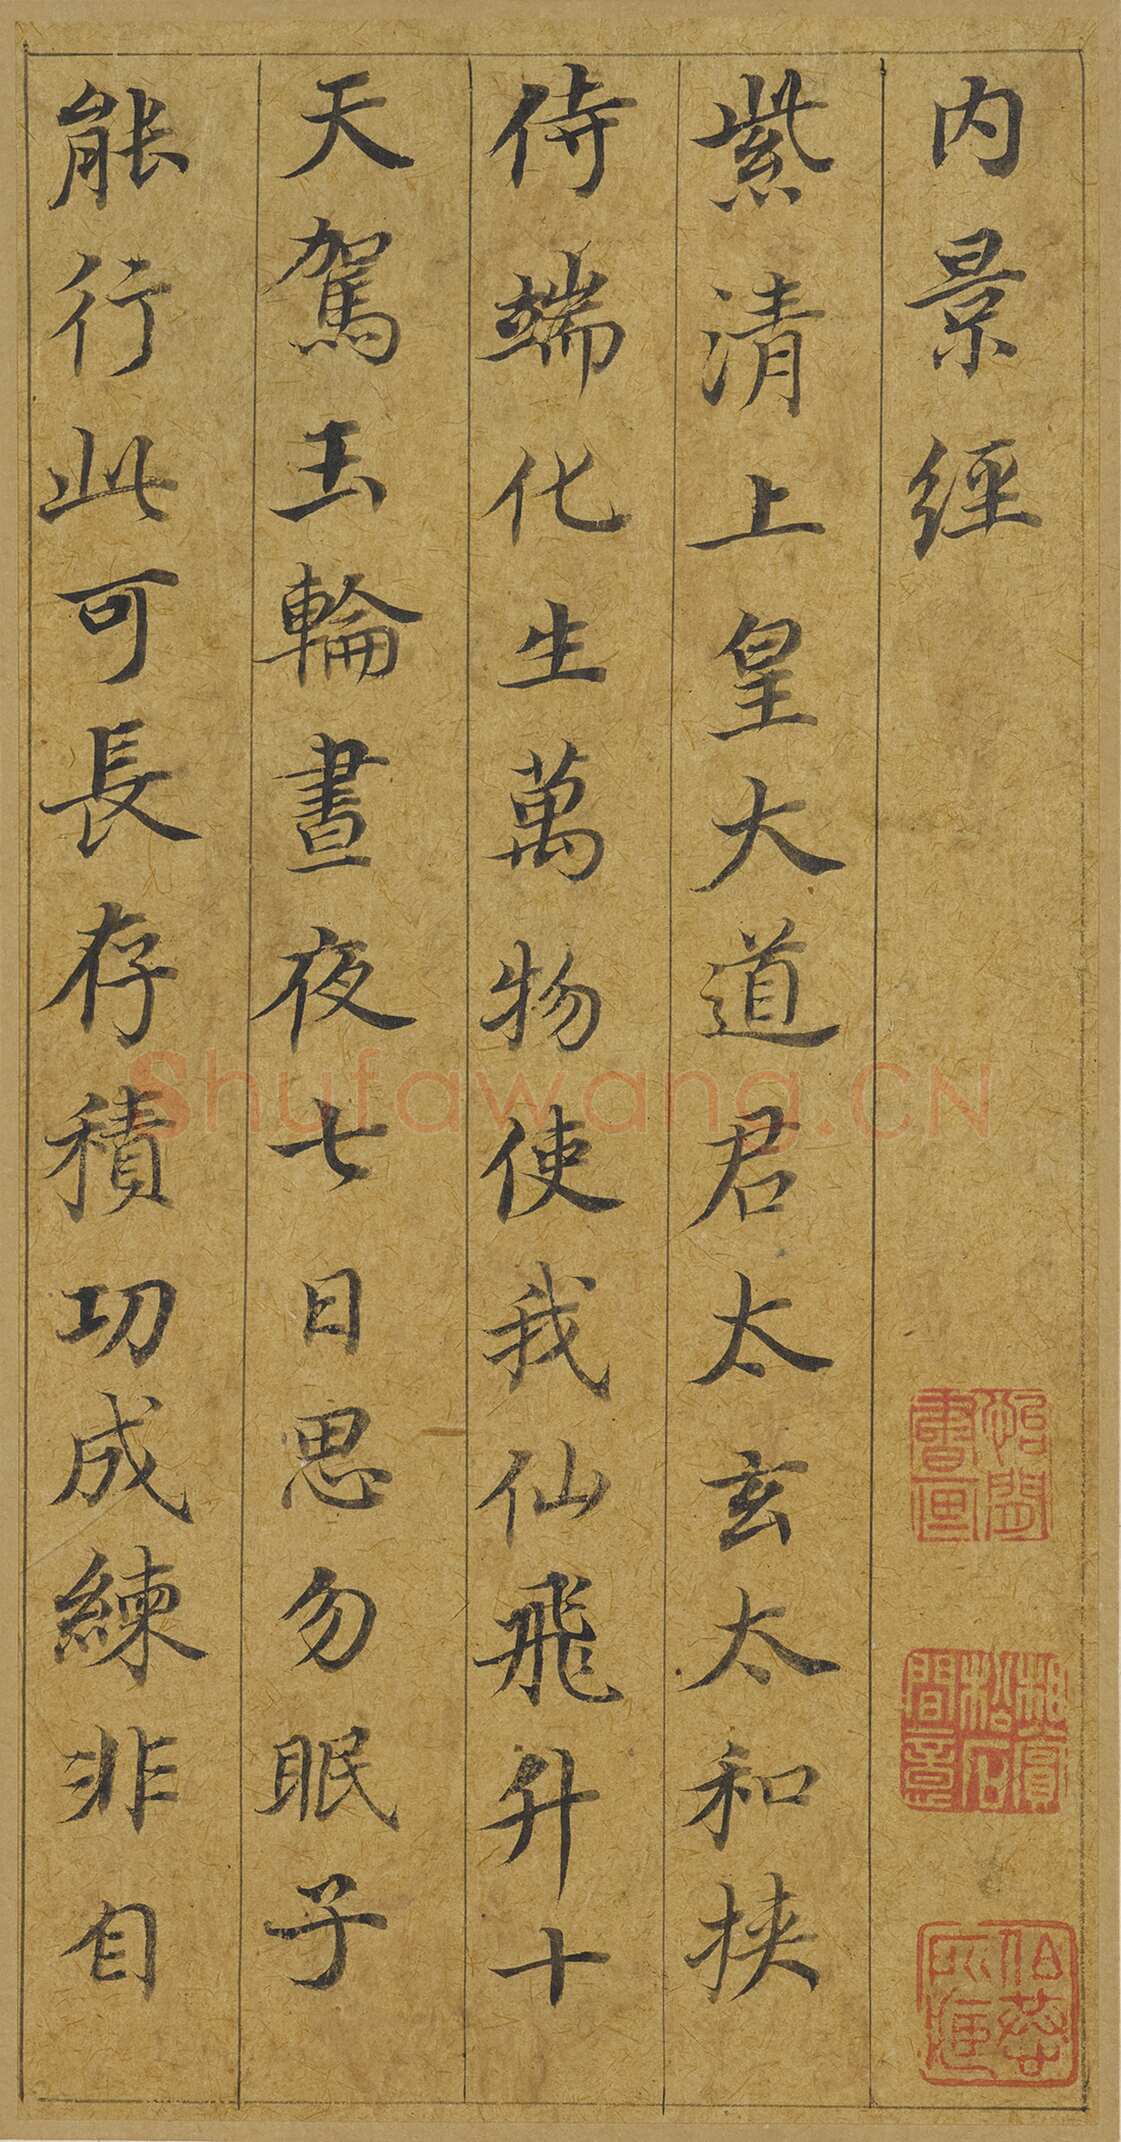 内景經
紫清上皇大道君太玄太和挾
侍端化生萬物使我仙飛升十
天駕玉輪晝夜七日思勿眠子
能行此可長存積功成練非自
Shufawang.CN